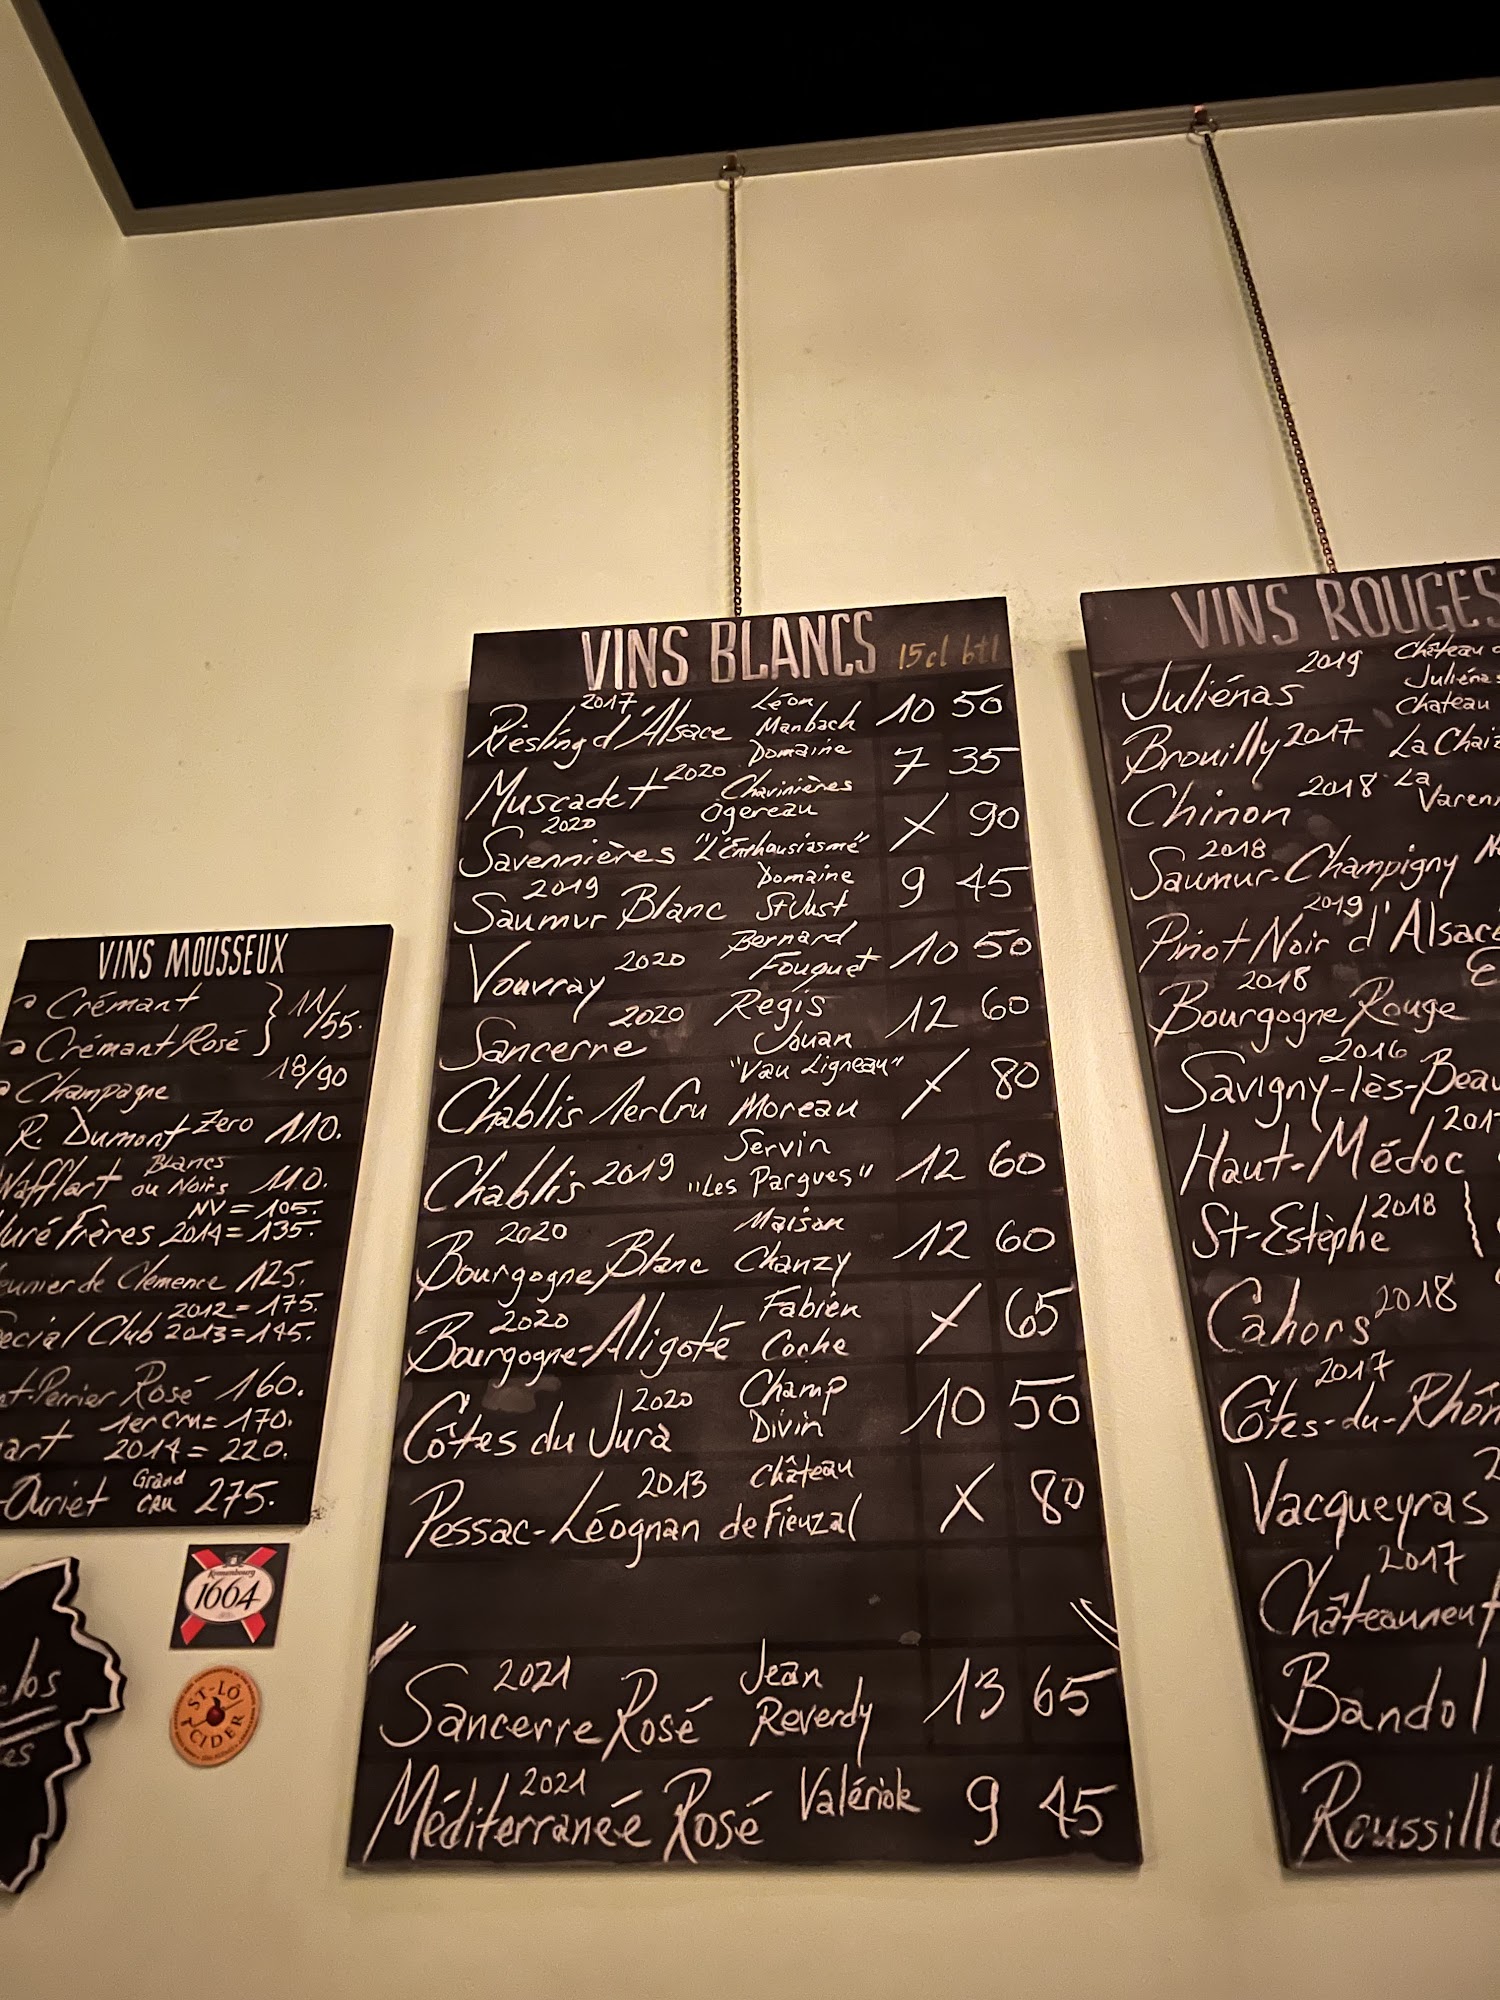 VINS MOUSSEUX
Crémant
Crémant Rosé } 11/55.
Champagne 18/90
R. Dumont Zero 110.
Wafflart Blancs ou Noirs 110.
NV = 105.
uré Frères 2014 = 135.
eunier de Clemence 125.
2012 = 175.
ecial Club 2013 = 145.
t-Perrier Rosé 160.
1er Cru = 170.
art 2014 = 220.
Ouriet Grand Cru 275.
Kronenbourg
1664
ST-LÔ
CIDER
elos
es
VINS BLANCS 15cl btl
Riesling d'Alsace 2017 Léon Manbach 10 50
Muscadet 2020 Domaine Chavinières 7 35
Savennières 2020 Ogereau "L'Enthousiasmé" X 90
Saumur Blanc 2019 Domaine St Just 9 45
Vouvray 2020 Bernard Fouquet 10 50
Sancerre 2020 Regis Jouan 12 60
Chablis 1er Cru "Vau Ligneau" Moreau X 80
Chablis 2019 Servin "Les Pargues" 12 60
Bourgogne Blanc 2020 Maison Chanzy 12 60
Bourgogne-Aligoté 2020 Fabien Coche X 65
Côtes du Jura 2020 Champ Divin 10 50
Pessac-Léognan 2013 Château de Fieuzal X 80
Sancerre Rosé 2021 Jean Reverdy 13 65
Méditerranée Rosé 2021 Valériole 9 45
VINS ROUGES
Juliénas 2019 Château Juliénas
Brouilly 2017 Chateau La Chaiz
Chinon 2018 La Varenn
Saumur-Champigny 2018
Pinot Noir d'Alsace 2019
Bourgogne Rouge 2018
Savigny-lès-Beau 2016
Haut-Médoc 2017
St-Estèphe 2018
Cahors 2018
Côtes-du-Rhôn 2017
Vacqueyras
Châteauneuf 2017
Bandol
Roussillo